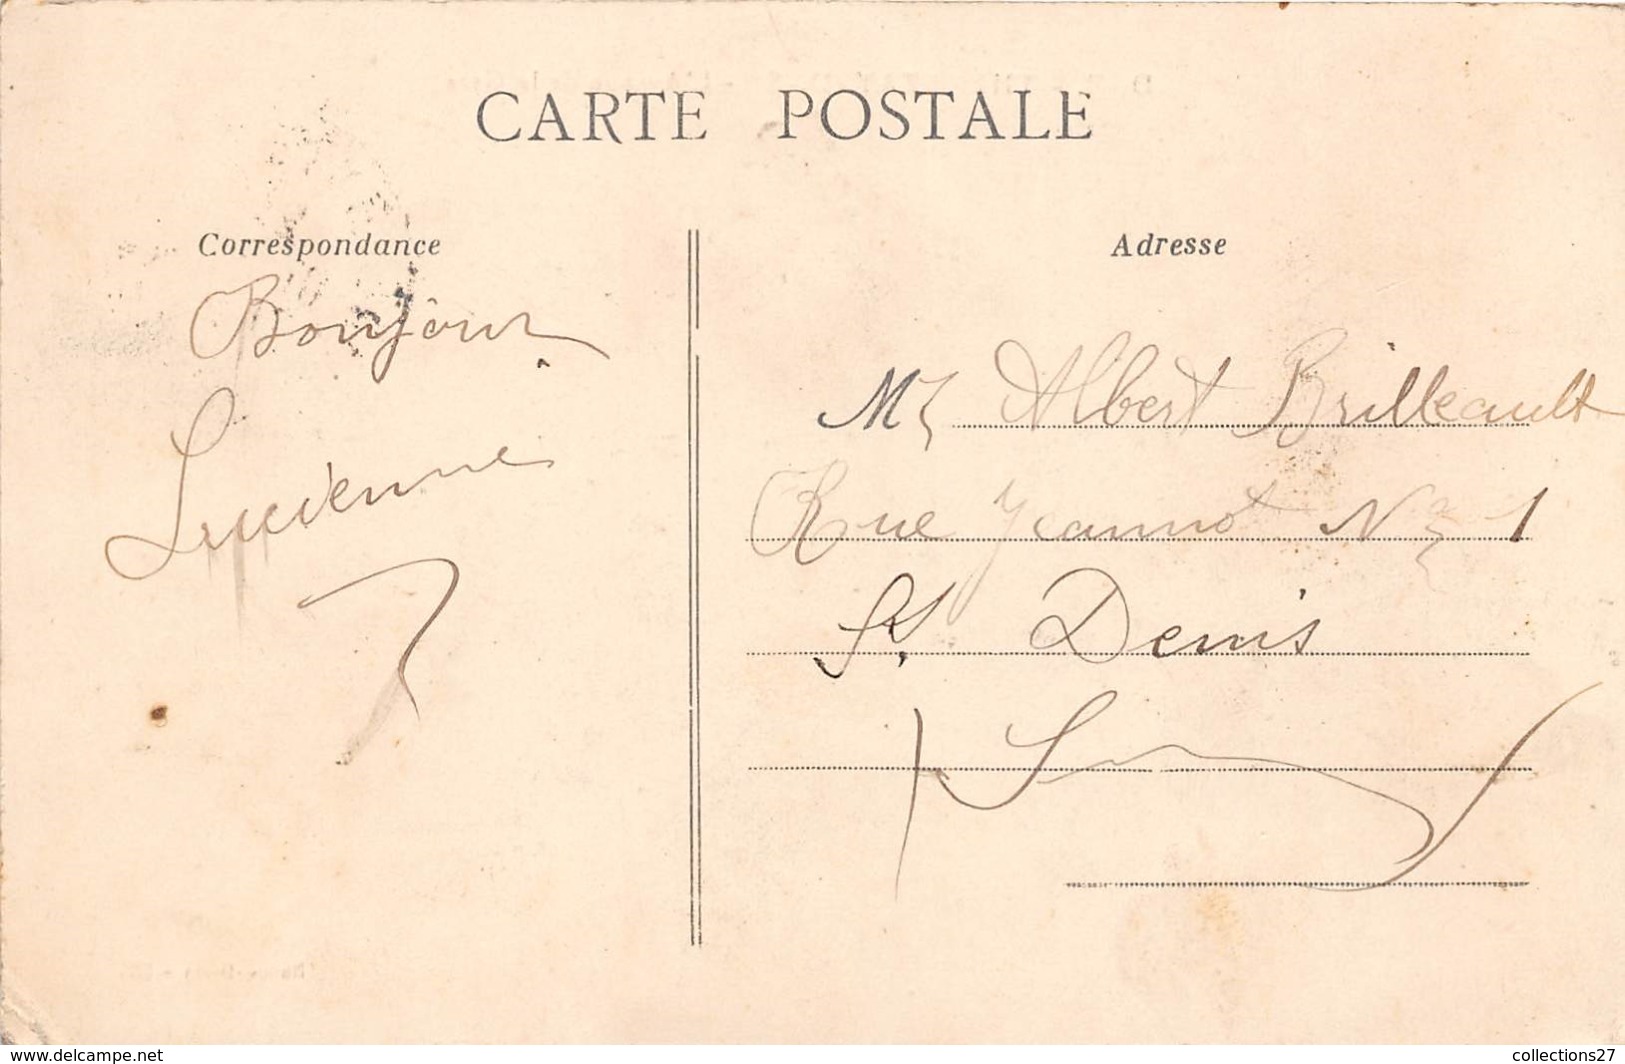 CARTE POSTALE
Correspondance
Bonjour
Lucienne
Adresse
Mr Albert Brilleault
Rue Jeannot No 1
St Denis
www.delcampe.net
collections27